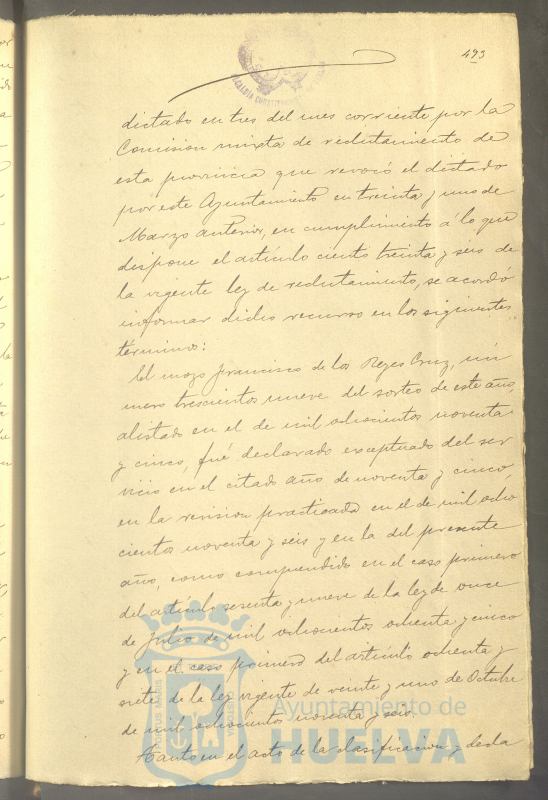 493
dictado en tres del mes corriente por la
Comision mixta de reclutamiento de
esta provincia que revocó el dictado
por este Ayuntamiento en treinta y uno de
Marzo anterior, en cumplimiento á lo que
dispone el artículo ciento treinta y seis de
la vigente ley de reclutamiento, se acordó
informar dicho recurso en los siguientes
términos:
El mozo Francisco de los Reyes Cruz, nú
mero trescientos nueve del sorteo de este año,
alistado en el de mil ochocientos noventa
y cinco, fué declarado exceptuado del ser
vicio en el citado año de noventa y cinco,
en la revision practicada en el de mil ocho
cientos noventa y seis y en la del presente
año, como comprendido en el caso primero
del artículo sesenta y nueve de la ley de once
de Julio de mil ochocientos ochenta y cinco
y en el caso primero del artículo ochenta y
siete de la ley vigente de veinte y uno de Octubre
de mil ochocientos noventa y seis.
Tanto en el acto de la clasificacion y decla
PORTUS MARIS
CUSTODIA
Ayuntamiento de
HUELVA